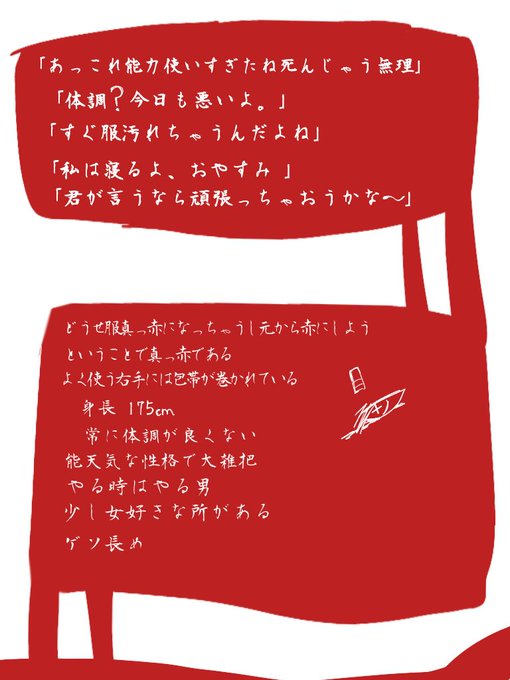 「あっこれ能力使いすぎたね死んじゃう無理」
「体調？今日も悪いよ。」
「すぐ服汚れちゃうんだよね」
「私は寝るよ、おやすみ 」
「君が言うなら頑張っちゃおうかな～」
どうせ服真っ赤になっちゃうし元から赤にしよう
ということで真っ赤である
よく使う右手には包帯が巻かれている
身長 175cm
常に体調が良くない
能天気な性格で大雑把
やる時はやる男
少し女好きな所がある
ゲソ長め